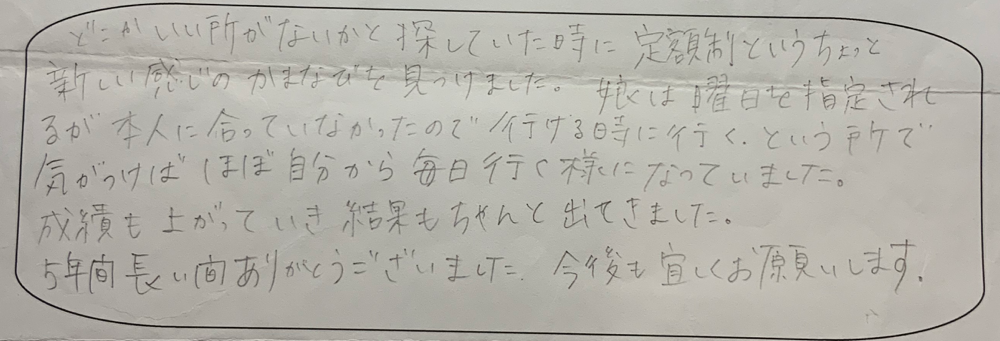 どこかいい所がないかと探していた時に定額制というちょっと
新しい感じのかまなびを見つけました。娘は曜日を指定され
るが本人に合っていなかったので行ける時に行く.という所で
気がつけばほぼ自分から毎日行く様になっていました。
成績も上がっていき結果もちゃんと出てきました。
5年間長い間ありがとうございました.今後も宜しくお願いします.